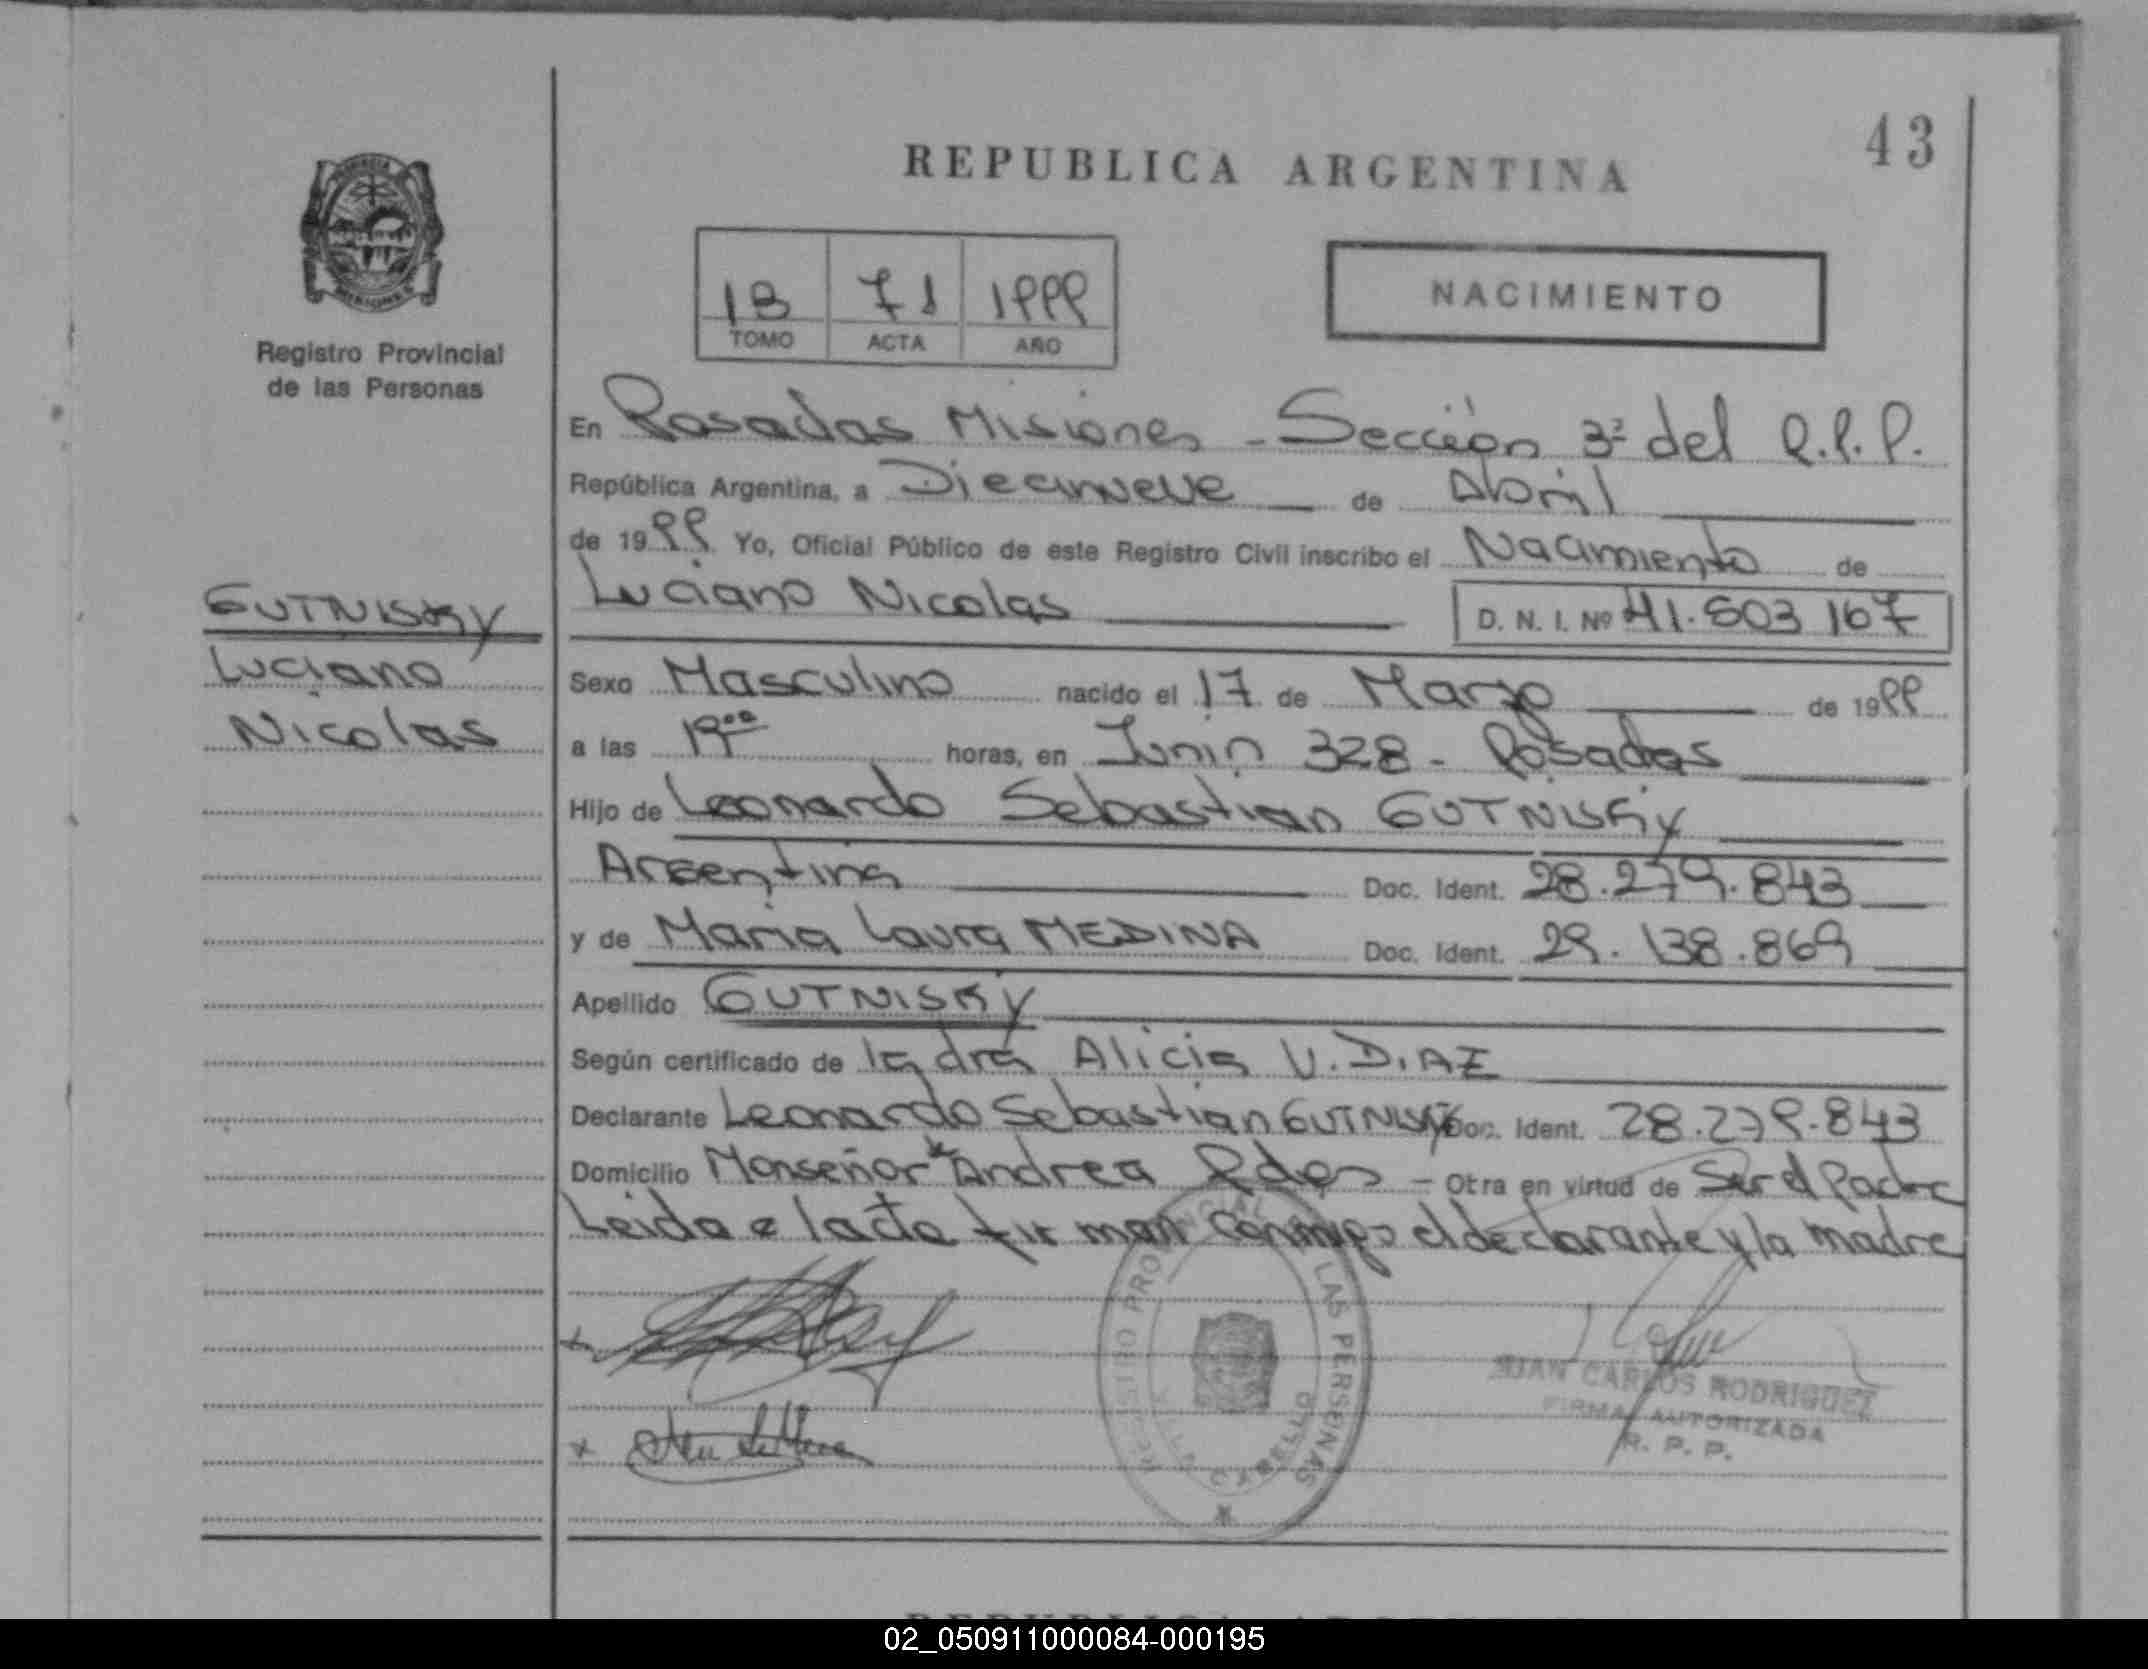 43
REPUBLICA ARGENTINA
1B 71 1999
TOMO ACTA AÑO
NACIMIENTO
Registro Provincial
de las Personas
En Posadas Misiones - Sección 3ª del R.P.P.
República Argentina, a Diecinueve de Abril
de 1999 Yo, Oficial Público de este Registro Civil inscribo el Nacimiento de
Luciano Nicolas D. N. I. Nº 41.803 167
GUTNISKY
Luciano
Nicolas
Sexo Masculino nacido el 17 de Marzo de 1999
a las 19⁰⁰ horas, en Junin 328 - Posadas
Hijo de Leonardo Sebastian GUTNISKY
Argentina Doc. Ident. 28.279.843
y de Maria Laura MEDINA Doc. Ident. 29.138.869
Apellido GUTNISKY
Según certificado de la dra Alicia V. DIAZ
Declarante Leonardo Sebastian GUTNISKY Doc. Ident. 28.279.843
Domicilio Monseñor Andrea Pdas - Otra en virtud de Ser el Padre
Leida e lacta firman conmigo el declarante y la madre
REGISTRO PROVINCIAL LAS PERSONAS
VILLA CABELLO
JUAN CARLOS RODRIGUEZ
FIRMA AUTORIZADA
R. P. P.
02_050911000084-000195